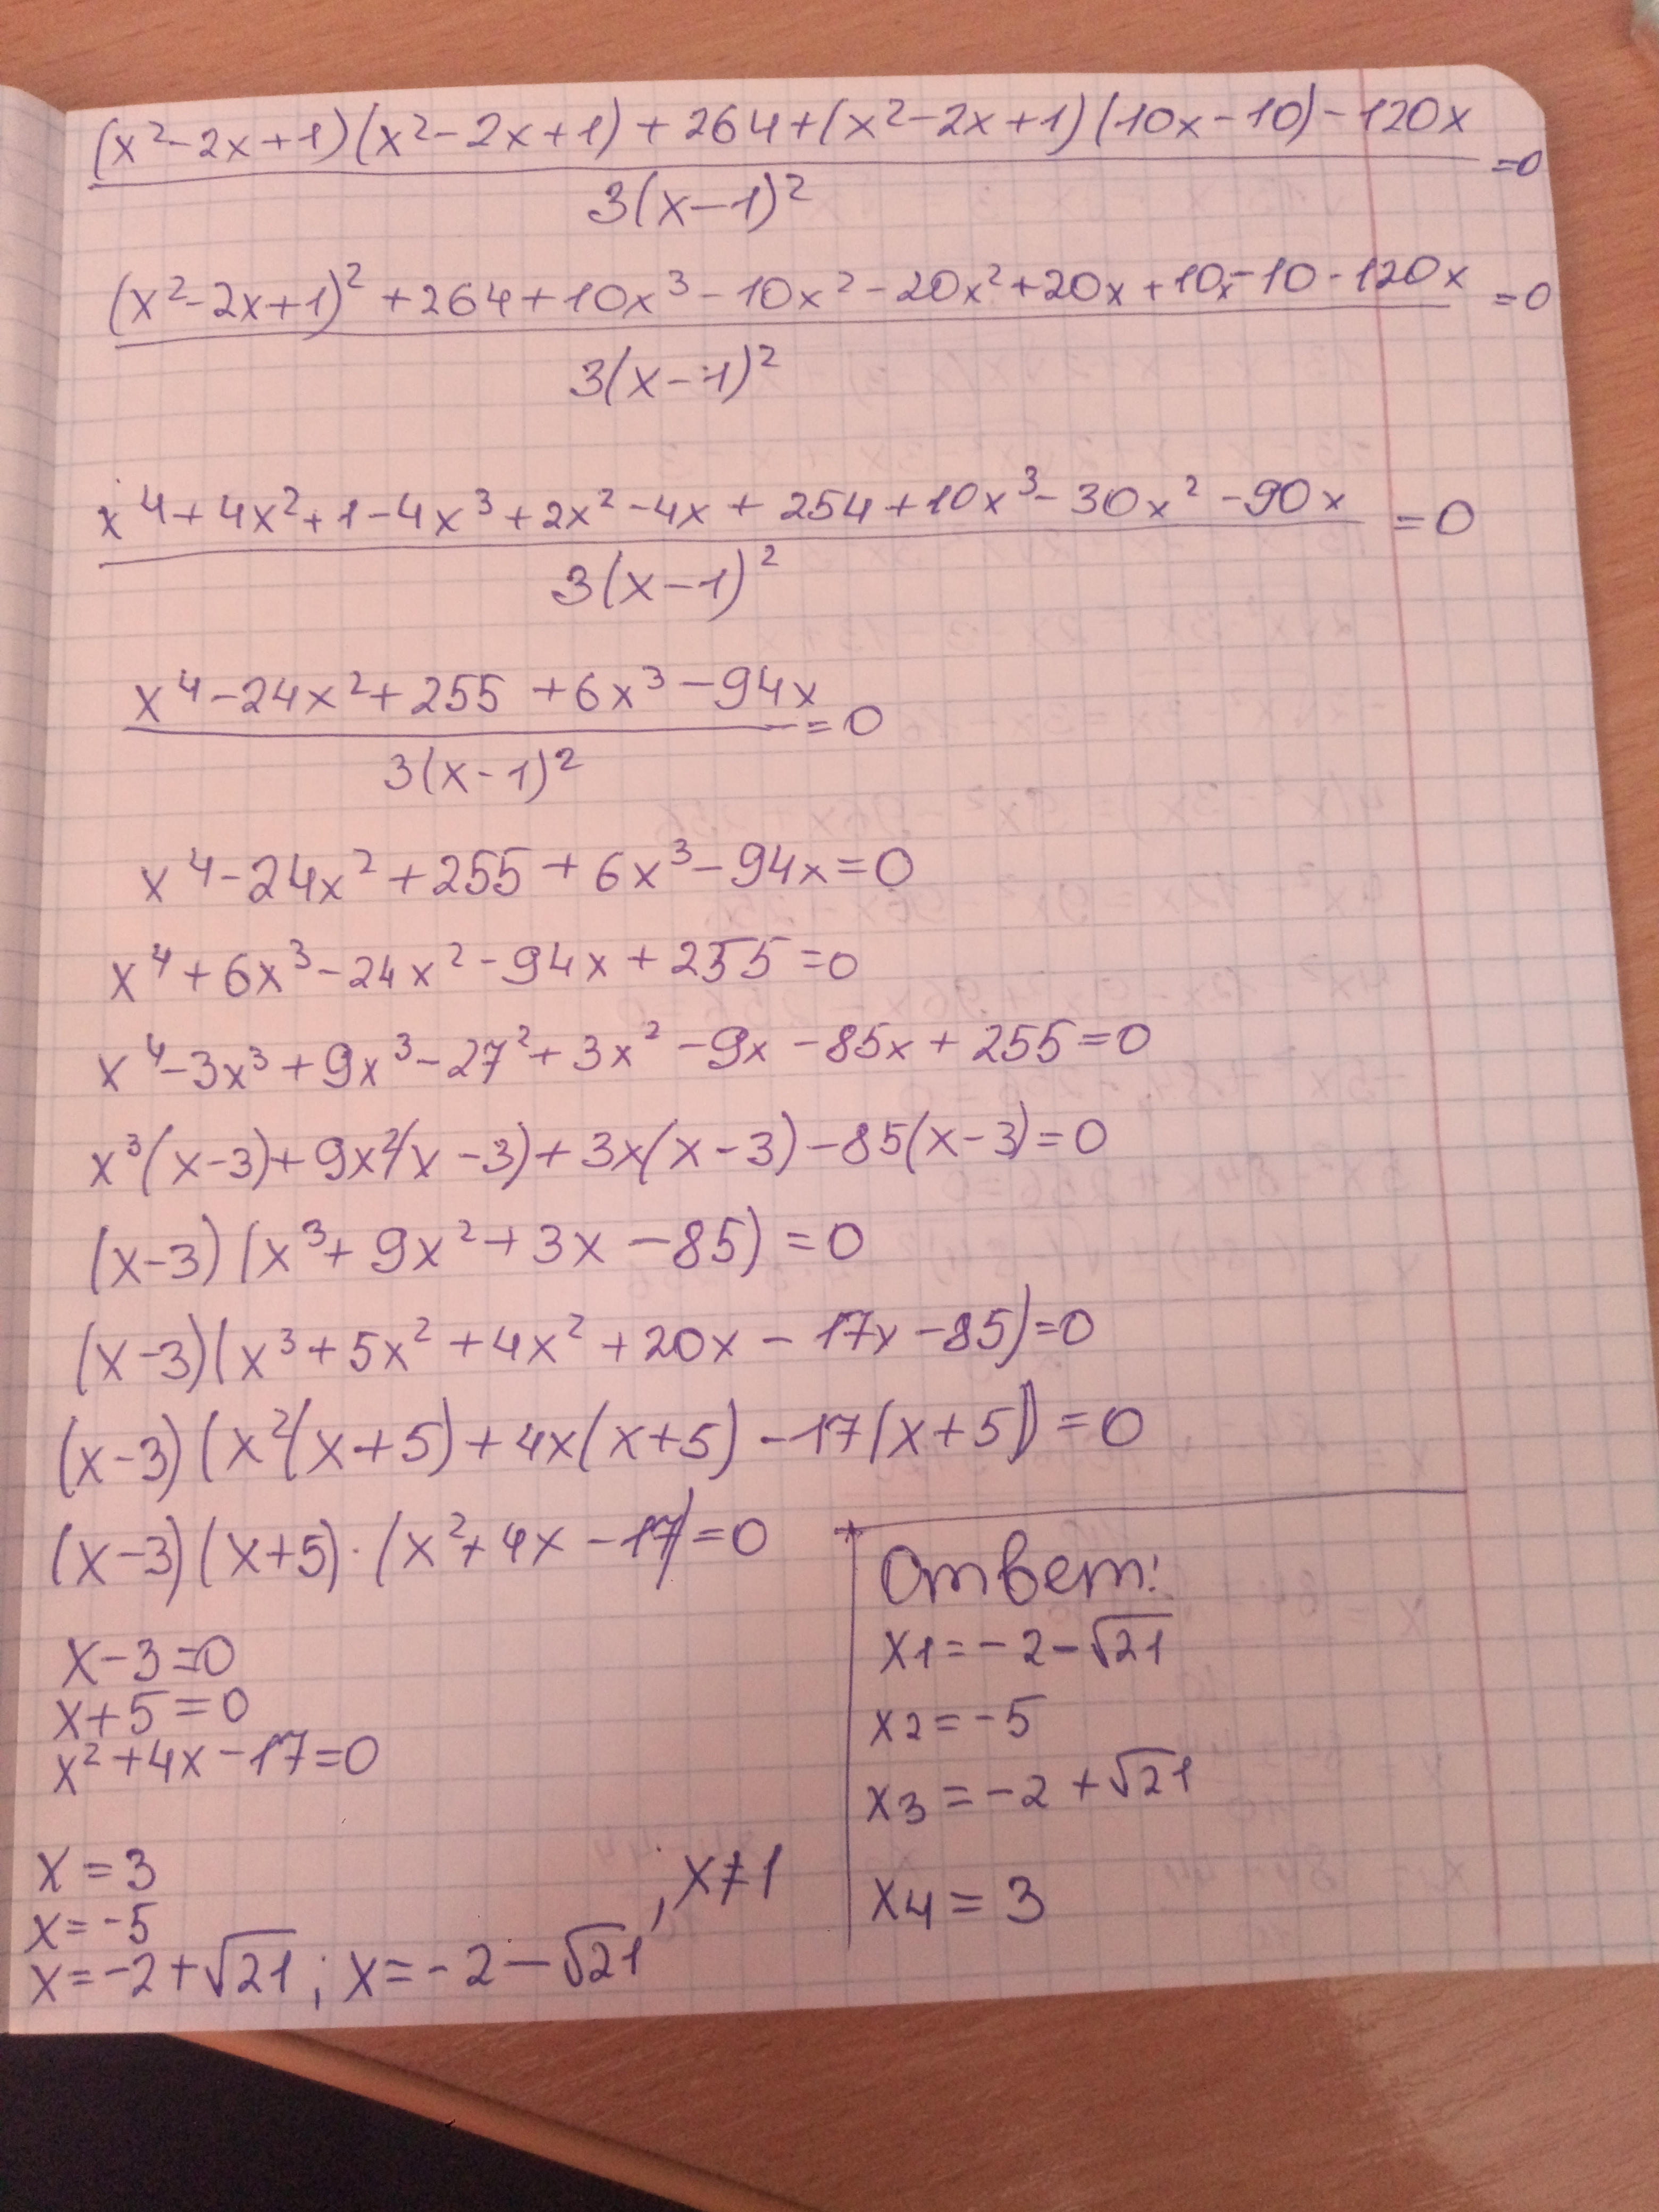 (x²-2x+1)(x²-2x+1)+264+(x²-2x+1)(10x-10)-120x
3(x-1)²
=0
(x²-2x+1)²+264+10x³-10x²-20x²+20x+10x-10-120x
3(x-1)²
=0
x⁴+4x²+1-4x³+2x²-4x+254+10x³-30x²-90x
3(x-1)²
=0
x⁴-24x²+255+6x³-94x
3(x-1)²
=0
x⁴-24x²+255+6x³-94x=0
x⁴+6x³-24x²-94x+255=0
x⁴-3x³+9x³-27²+3x²-9x-85x+255=0
x³(x-3)+9x²(x-3)+3x(x-3)-85(x-3)=0
(x-3)(x³+9x²+3x-85)=0
(x-3)(x³+5x²+4x²+20x-17x-85)=0
(x-3)(x²(x+5)+4x(x+5)-17(x+5))=0
(x-3)(x+5)·(x²+4x-17)=0
x-3=0
x+5=0
x²+4x-17=0
x=3
x=-5
x=-2+√21; x=-2-√21, x≠1
Ответ:
x1=-2-√21
x2=-5
x3=-2+√21
x4=3